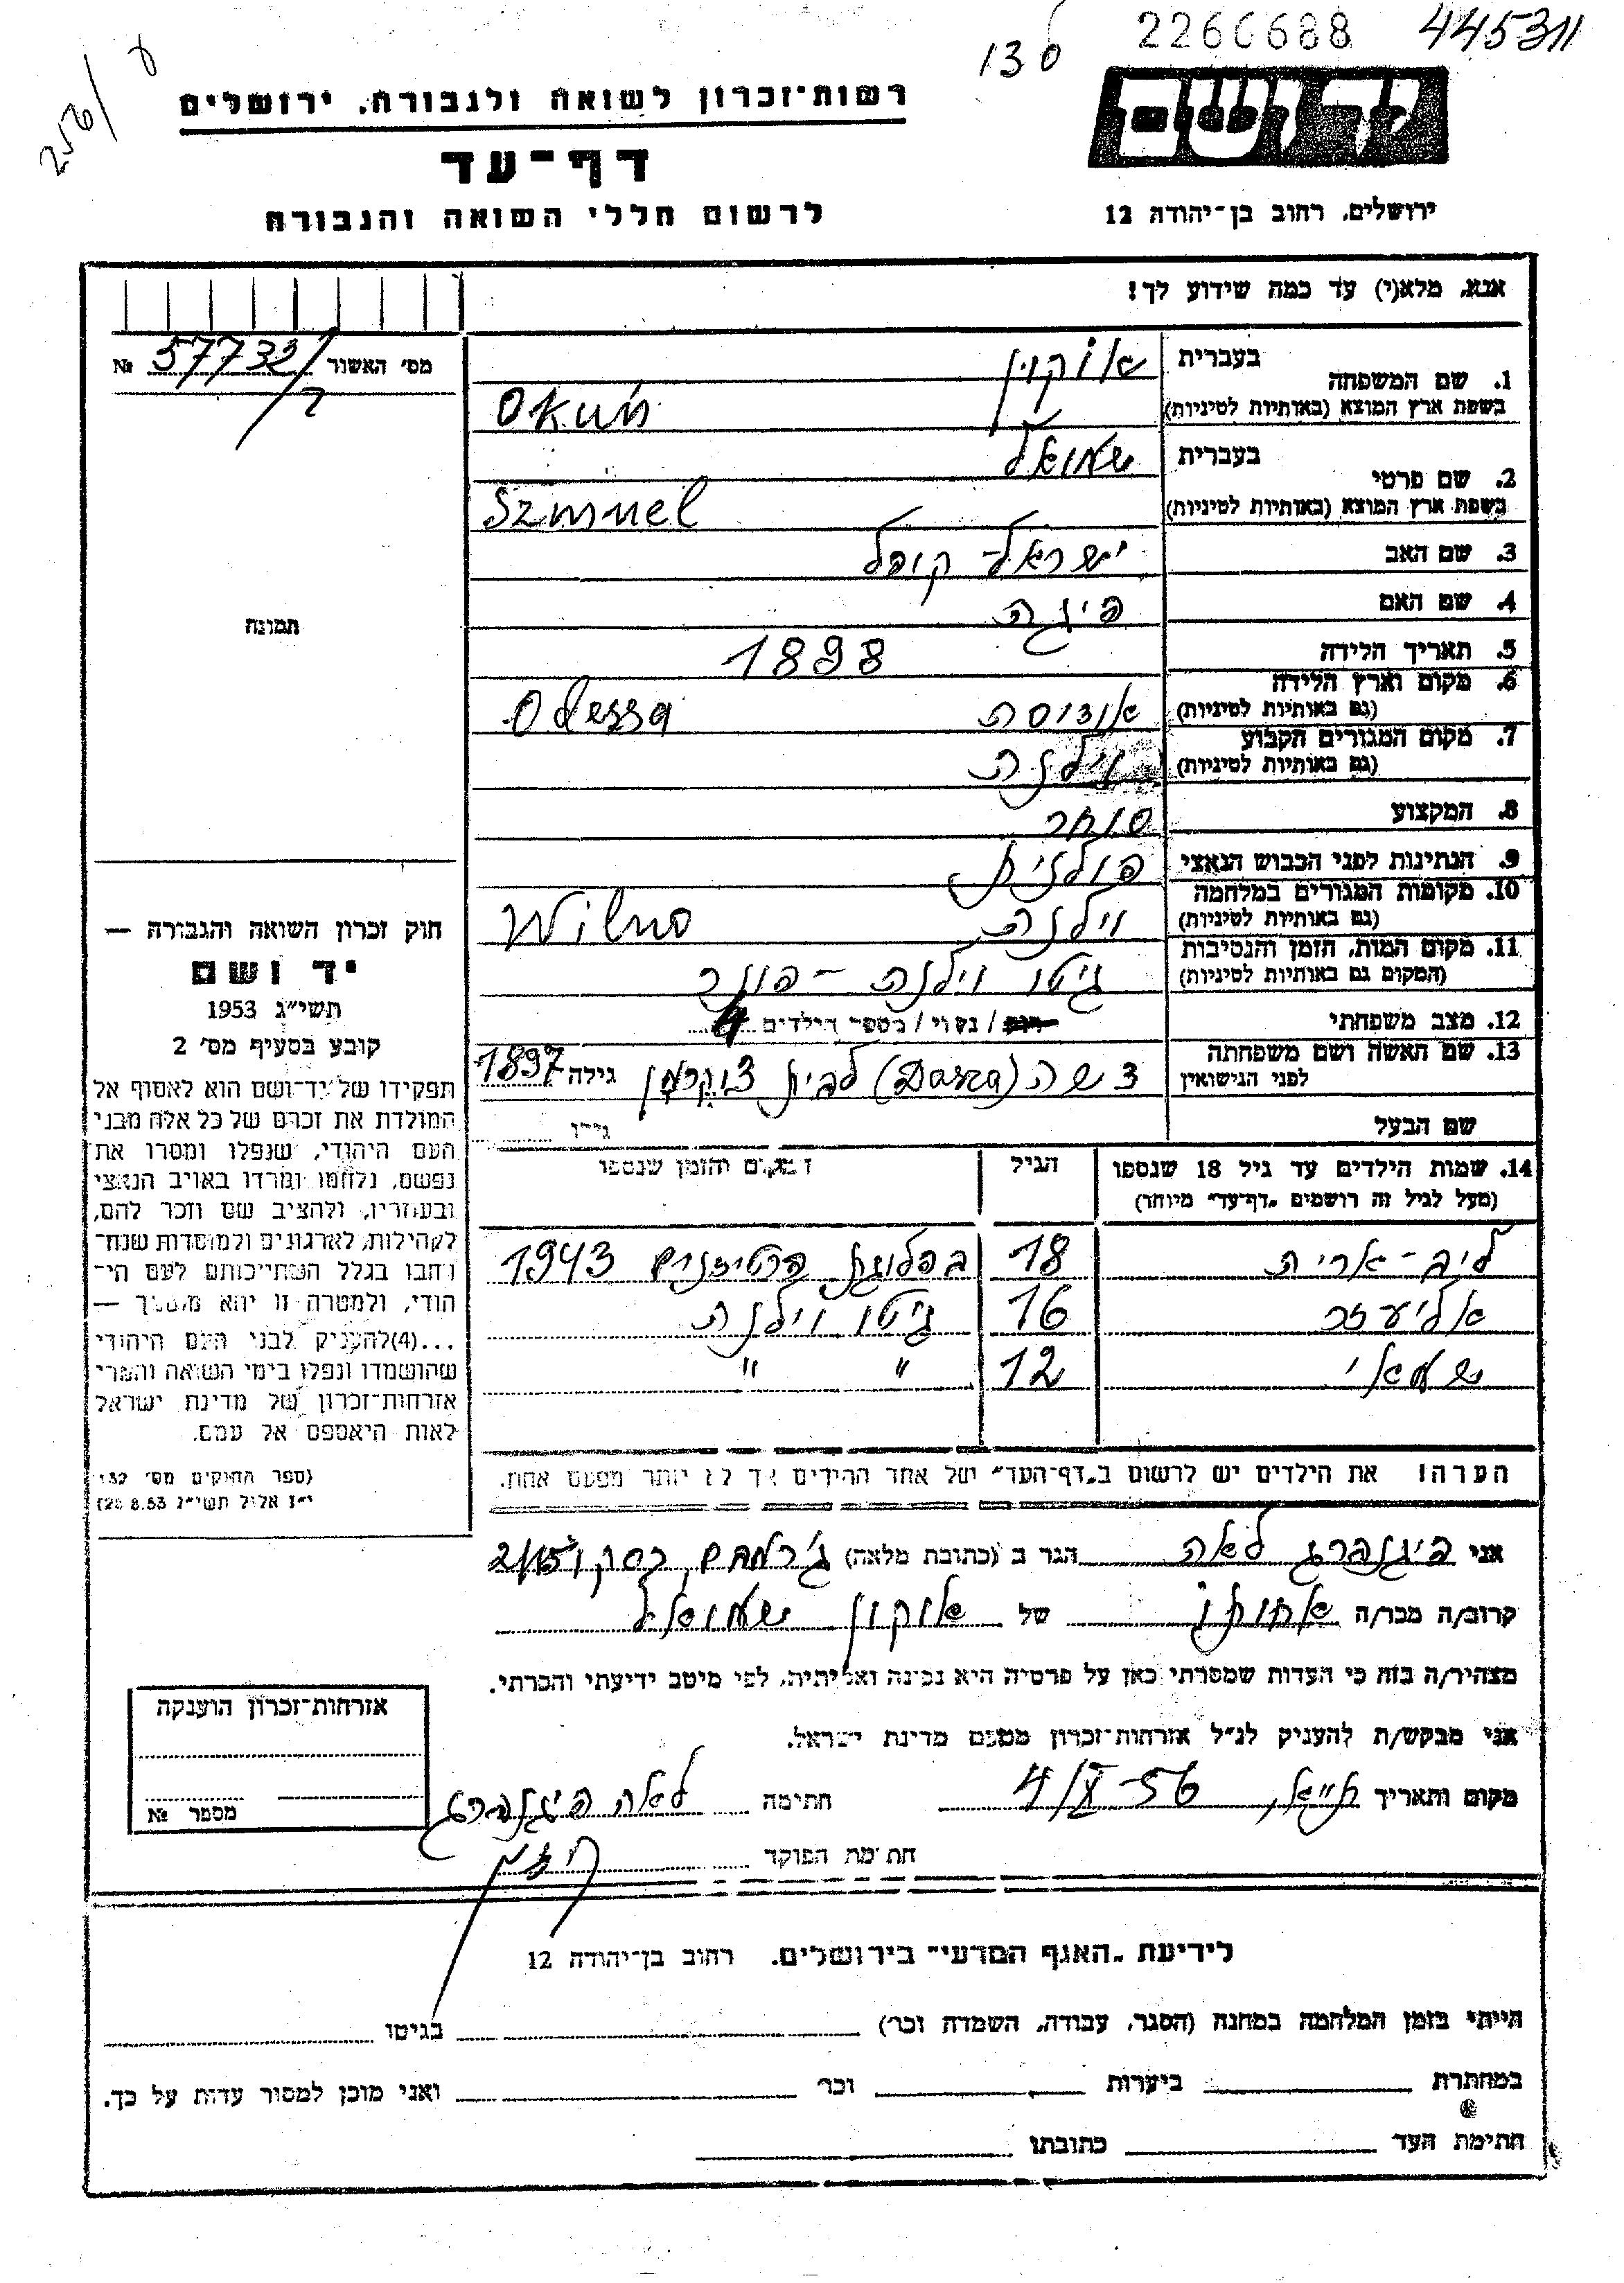 130 2266688 445311
256/
רשות־זכרון לשואה ולגבורה, ירושלים
יד ושם
דף־עד
לרשום חללי השואה והגבורה
ירושלים, רחוב בן־יהודה 12
אנא, מלא(י) עד כמה שידוע לך!
מס׳ האשור 57732 №
1. שם המשפחה
בעברית אוקון
בשפת ארץ המוצא (באותיות לטיניות) Okuń
2. שם פרטי
בעברית שמואל
בשפת ארץ המוצא (באותיות לטיניות) Szmuel
3. שם האב ישראל-קופל
4. שם האם פיגה
5. תאריך הלידה 1898
6. מקום וארץ הלידה
(גם באותיות לטיניות) אודוסה Odessa
7. מקום המגורים הקבוע
(גם באותיות לטיניות) וילנה
8. המקצוע סוחר
9. הנתינות לפני הכבוש הנאצי פולנית
10. מקומות המגורים במלחמה
(גם באותיות לטיניות) וילנה Wilno
11. מקום המות, הזמן והנסיבות
(המקום גם באותיות לטיניות) גיטו וילנה - פונר
12. מצב משפחתי רווק / נשוי / מספר הילדים 4
13. שם האשה ושם משפחתה
לפני הנישואין דשה (Dasza) לבית צוקרמן גילה 1897
שם הבעל גילו
תמונה
חוק זכרון השואה והגבורה —
יד ושם
תשי״ג 1953
קובע בסעיף מס׳ 2
תפקידו של יד־ושם הוא לאסוף אל
המולדת את זכרם של כל אלה מבני
העם היהודי, שנפלו ומסרו את
נפשם, נלחמו ומרדו באויב הנאצי
ובעוזריו, ולהציב שם וזכר להם,
לקהילות, לארגונים ולמוסדות שנח־
רבו בגלל השתייכותם לעם הי־
הודי, ולמטרה זו יהא מוסמך —
...(4)להעניק לבני העם היהודי
שהושמדו ונפלו בימי השואה והמרי
אזרחות־זכרון של מדינת ישראל
לאות היאספם אל עמם.
(ספר החוקים מס׳ 132
י״ז אלול תשי״ג 28.8.53)
14. שמות הילדים עד גיל 18 שנספו הגיל המקום והזמן שנספו
(מעל לגיל זה רושמים „דף־עד״ מיוחד)
ליב-אריה 18 בפלוגת פרטיזנים 1943
אליעזר 16 גיטו וילנה
שמאי 12 " "
הערה! את הילדים יש לרשום ב„דף־העד״ של אחד ההורים אך לא יותר מפעם אחת.
אני פיגנברג לאה הגר ב (כתובת מלאה)
קרוב/ה מכר/ה אחותו של אוקון שמואל
מצהיר/ה בזה כי העדות שמסרתי כאן על פרטיה היא נכונה ואמיתית, לפי מיטב ידיעתי והכרתי.
אני מבקש/ת להעניק לנ״ל אזרחות־זכרון מטעם מדינת ישראל.
מקום ותאריך 4/X-56 חתימה לאה פיגנברג
חתימת הפוקד
אזרחות־זכרון הוענקה
מספר №
לידיעת „האגף המדעי״ בירושלים, רחוב בן־יהודה 12
הייתי בזמן המלחמה במחנה (הסגר, עבודה, השמדה וכו׳) בגיטו
במחתרת ביערות וכו׳ ואני מוכן למסור עדות על כך.
חתימת העד כתובתו